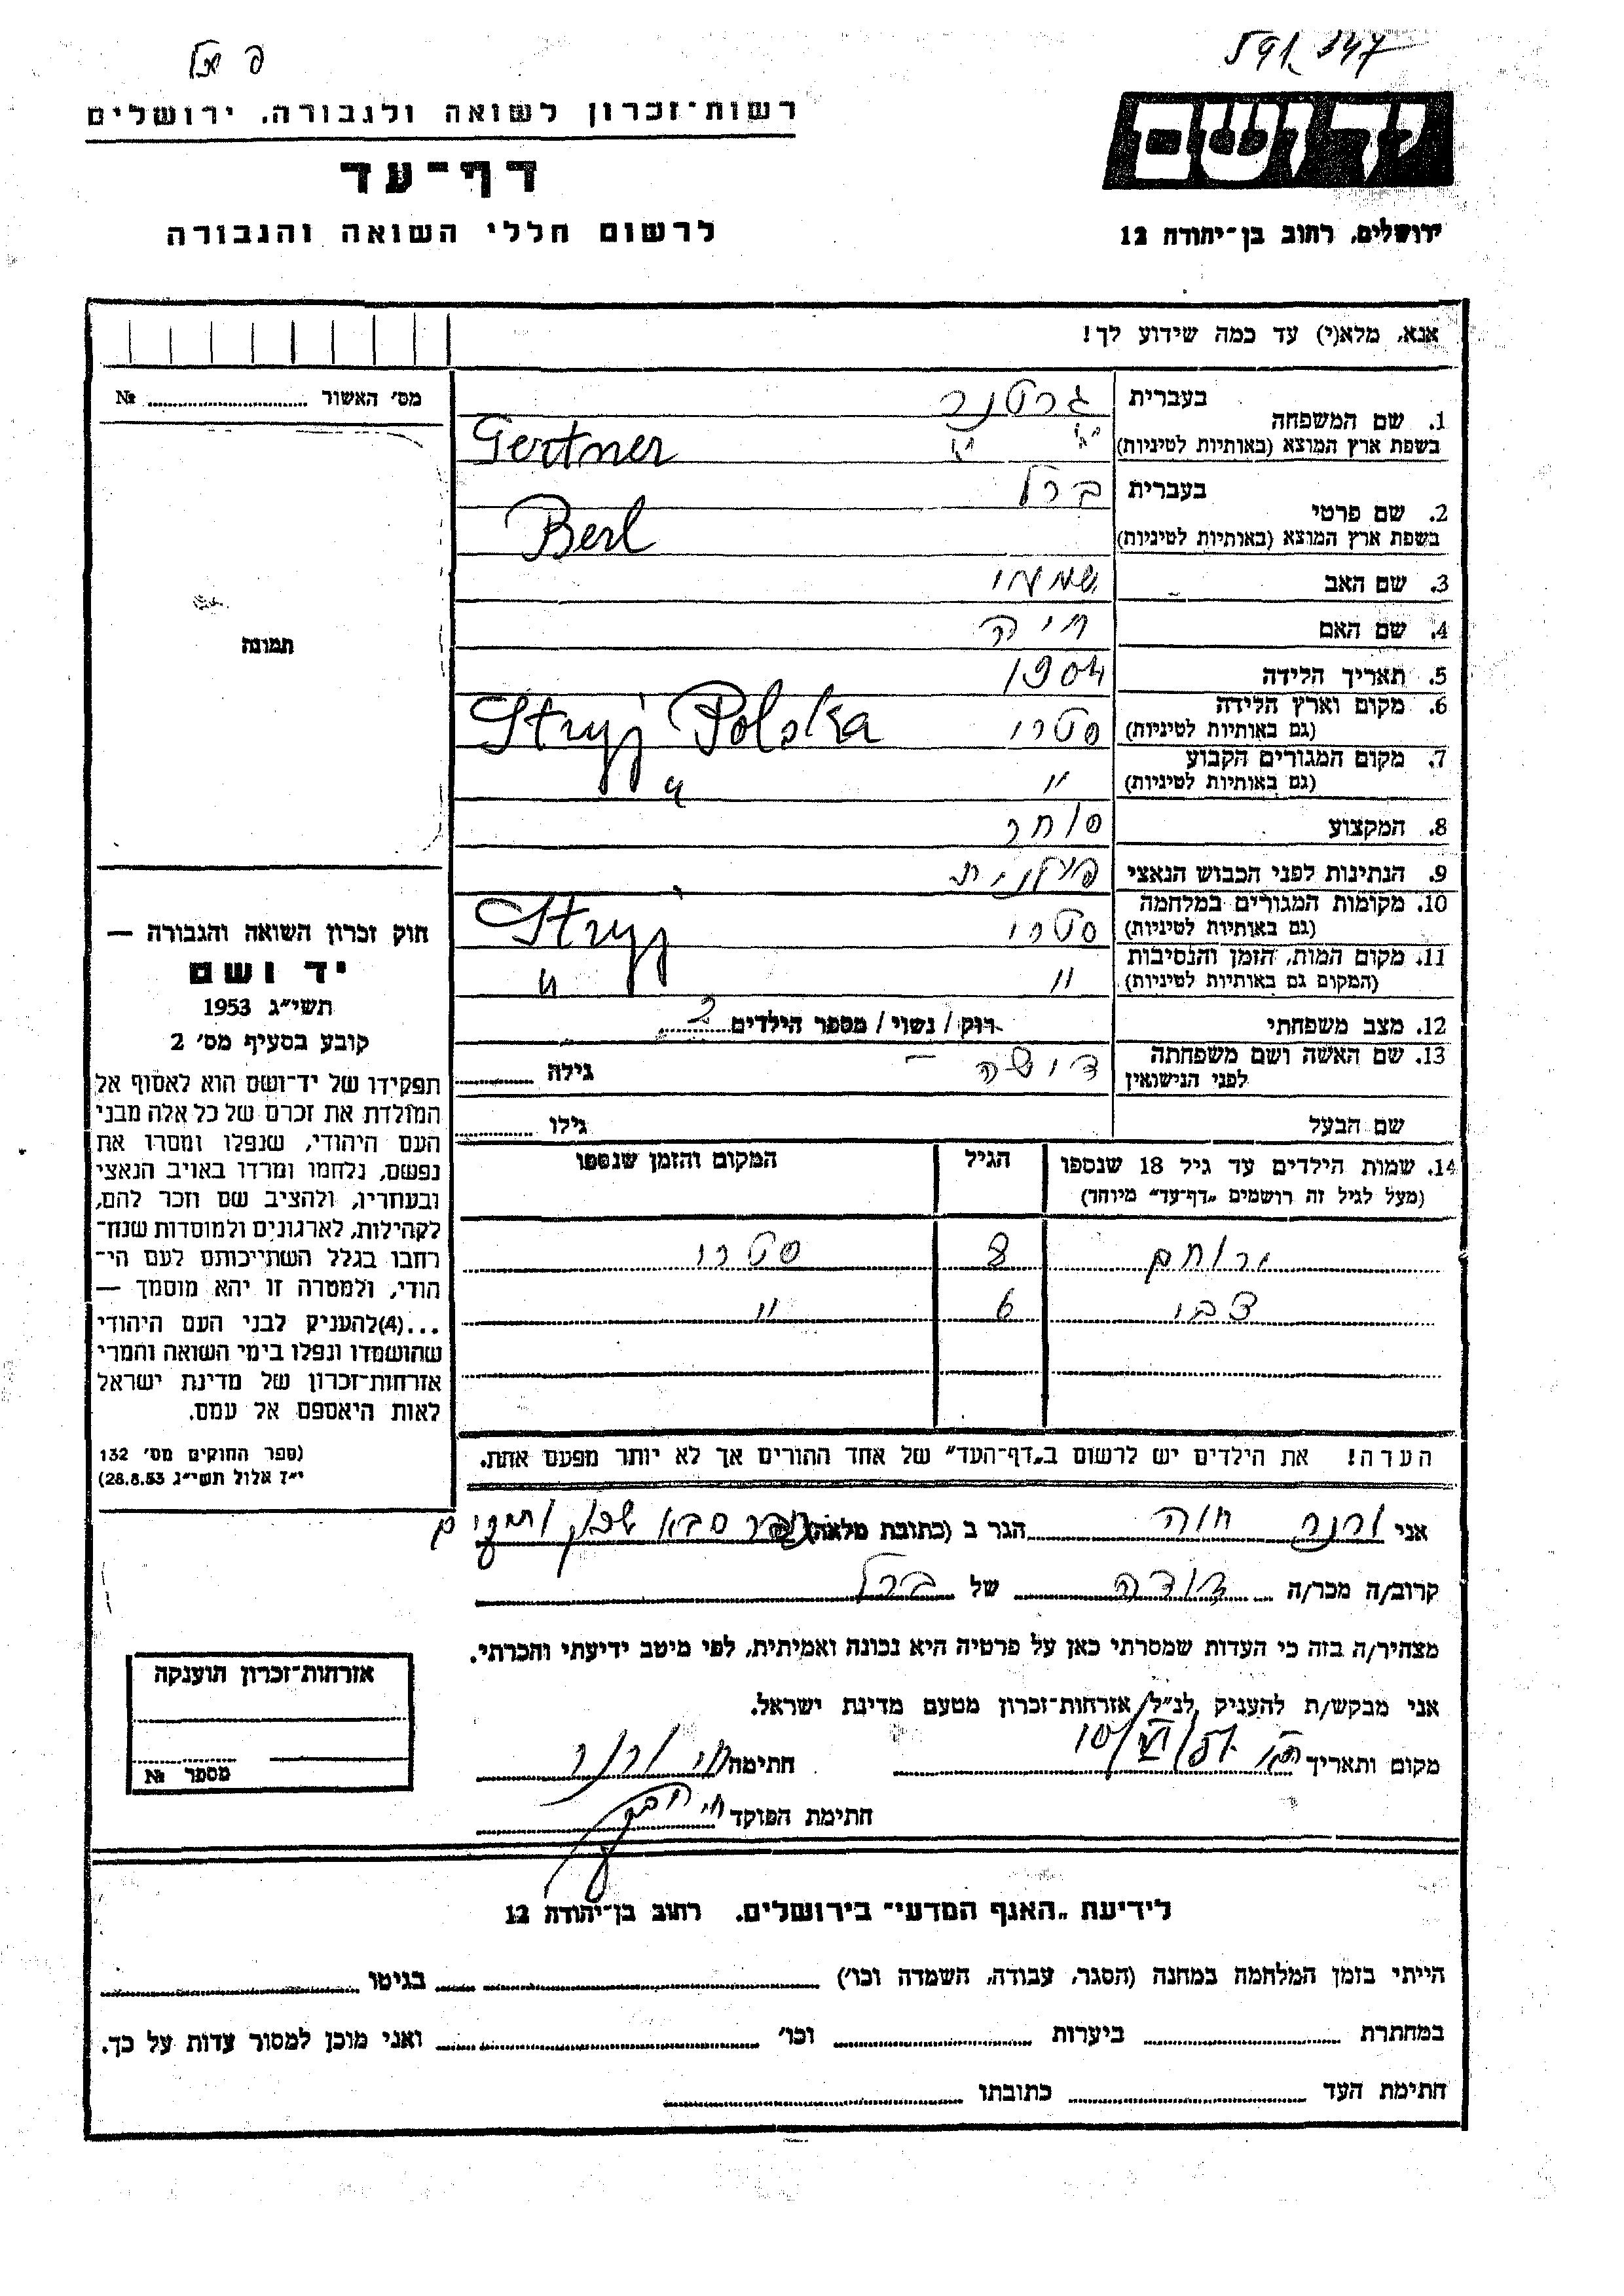 רשות־זכרון לשואה ולגבורה, ירושלים
דף־עד
לרשום חללי השואה והגבורה
יד ושם
ירושלים, רחוב בן־יהודה 12
אנא, מלא(י) עד כמה שידוע לך!
מס׳ האשור № 
תמונה
חוק זכרון השואה והגבורה —
יד ושם
תשי״ג 1953
קובע בסעיף מס׳ 2
תפקידו של יד־ושם הוא לאסוף אל
המולדת את זכרם של כל אלה מבני
העם היהודי, שנפלו ומסרו את
נפשם, נלחמו ומרדו באויב הנאצי
ובעוזריו, ולהציב שם וזכר להם,
לקהילות, לארגונים ולמוסדות שנח־
רחבו בגלל השתייכותם לעם הי־
הודי, ולמטרה זו יהא מוסמך —
...(4)להעניק לבני העם היהודי
שהושמדו ונפלו בימי השואה והמרי
אזרחות־זכרון של מדינת ישראל
לאות היאספם אל עמם.
(ספר החוקים מס׳ 132
י״ז אלול תשי״ג 28.8.53)
1. שם המשפחה בעברית גרטנר
בשפת ארץ המוצא (באותיות לטיניות) Gertner
2. שם פרטי בעברית ברל
בשפת ארץ המוצא (באותיות לטיניות) Berl
3. שם האב
4. שם האם חיה
5. תאריך הלידה 1904
6. מקום וארץ הלידה (גם באותיות לטיניות) סטרי Stryj Polska
7. מקום המגורים הקבוע (גם באותיות לטיניות) " "
8. המקצוע סוחר
9. הנתינות לפני הכבוש הנאצי פולנית
10. מקומות המגורים במלחמה (גם באותיות לטיניות) סטרי Stryj
11. מקום המות, הזמן והנסיבות (המקום גם באותיות לטיניות) " "
12. מצב משפחתי רוק / נשוי / מספר הילדים 2
13. שם האשה ושם משפחתה לפני הנישואין דושה — גילה
שם הבעל גילו
14. שמות הילדים עד גיל 18 שנספו (מעל לגיל זה רושמים „דף־עד״ מיוחד) הגיל המקום והזמן שנספו
ירוחם 8 סטרי
צבי 6 "
הערה! את הילדים יש לרשום ב„דף־העד״ של אחד ההורים אך לא יותר מפעם אחת.
אני ורנר חוה הגר ב (כתובת מלאה) כפר סבא שכון ותיקים
קרוב/ה מכר/ה דודה של ברל
מצהיר/ה בזה כי העדות שמסרתי כאן על פרטיה היא נכונה ואמיתית, לפי מיטב ידיעתי והכרתי.
אני מבקש/ת להעניק לנ״ל אזרחות־זכרון מטעם מדינת ישראל.
מקום ותאריך 10/VI חתימה ורנר
חתימת הפוקד
אזרחות־זכרון הוענקה
מספר №
לידיעת „האגף המדעי״ בירושלים, רחוב בן־יהודה 12
הייתי בזמן המלחמה במחנה (הסגר, עבודה, השמדה וכו׳) בגיטו
במחתרת ביערות וכו׳ ואני מוכן למסור עדות על כך.
חתימת העד כתובתו